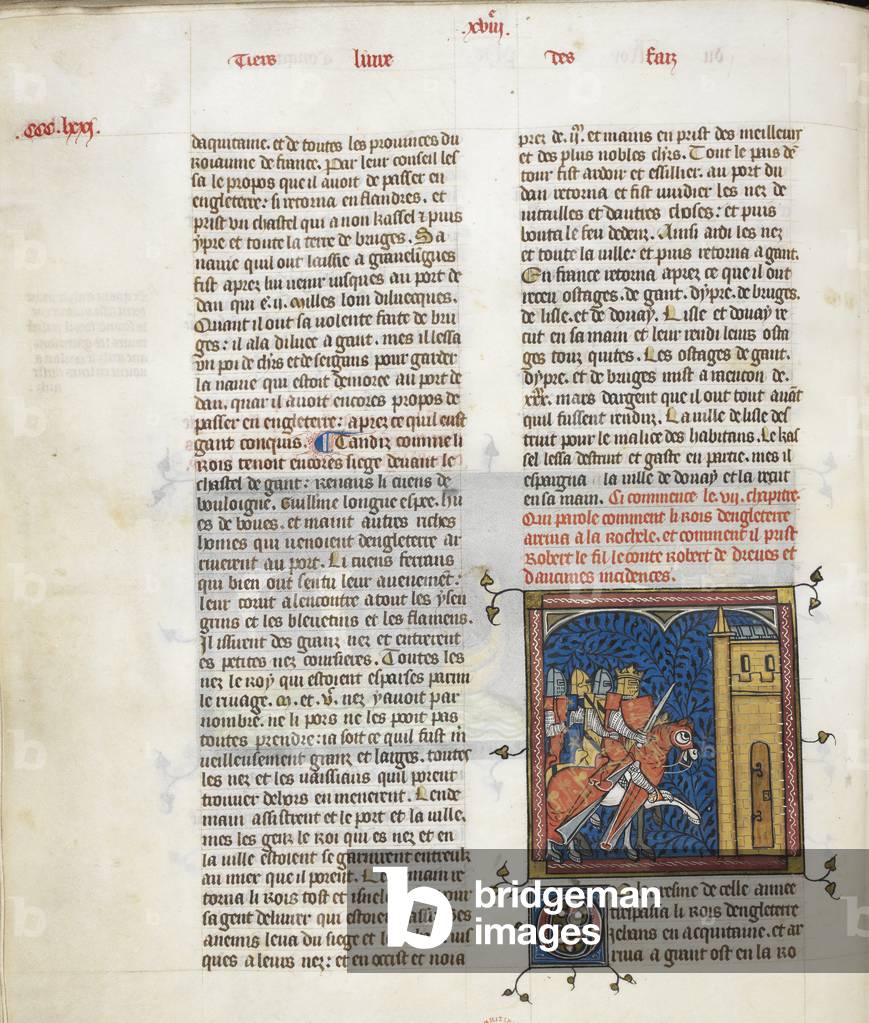 .xviij.e
Tiers liure des faiz
.CCC.lxxj.
daquitaine. et de toutes les prouinces du
Roiaume de france. Par leur conseil les
sa le propos que il auoit de passer en
engleterre: si retorna en flandres. et
prist vn chastel qui a non kassel & puis
ypre et toute la terre de bruges. Sa
nauie quil out laissie a graueligues
fist apres lui uenir iusques au port de
dan qui e. ij. milles loin dilueques.
Quant il out sa volente faite de bru
ges: il ala diluec a gant. mes il lessa
vn poi de chrs et de sergans pour garder
la nauie qui estoit demoree au port de
dan. quar il auoit encores propos de
passer en engleterre: apres ce quil eust
gant conquis. Tandiz comme li
Rois tenoit encores siege deuant le
chastel de gant: Renaus li cuens de
bouloigne. Guillme longue espee. hu
es de boues. et maint autres riches
homes qui uenoient dengleterre ar
riuerent au port. Li cuens ferrans
qui bien out sentu leur auenement:
leur corut a lencontre a tout les yseu
grins et les bleuetins et les flamens.
Il issirent des granz nez et entrerent
es petites nez coursieres. Toutes les
nez le Roy qui estoient esparses parmi
le riuage. M. et. v.c nez y auoit par
nombre. ne li pors ne les poit pas
toutes prendre: ia soit ce quil fust m
ueilleusement granz et larges. toutes
les nez et les uaissiaus quil porent
trouuer dehors en menerent. Lende
main assistrent et le port et la ville.
mes les genz le Roi qui es nez et en
la ville estoient se garnirent entreulz
au miex que il porent.
torna li Rois tost et
sa gent deliurer qui estoient
anemis leua du siege et
ques a leurs nez: et en occist et noia
prez de. ij.m et mains en prist des meilleurs
et des plus nobles chrs. Tout le pais de
tour fist ardoir et essillier. au port du
dan retorna et fist wuidier les nez de
uitailles et dautres choses: et puis
bouta le feu dedenz. Ainsi ardi les nez
et toute la ville: et puis retorna a gant.
En france retorna apres ce que il out
receu ostages. de gant. dypre. de bruges.
de lisle. et de douay. Lisle et douay re
tint en sa main et leur rendi leurs osta
ges touz quites. Les ostages de gant.
dypre. et de bruges mist a raencon de.
xxx.m mars dargent que il out tout auant
quil fussent renduz. La ville de lisle des
truit pour le malice des habitans. Le kas
sel lessa destruit et gaste en partie. mes il
espargna la ville de douay et la retint
en sa main. Ci commence le. vij. chapitre.
Qui parole comment li Rois dengleterre
arriua a la Rochele. et comment il prist
Robert le fil le conte Robert de dreues et
daucunes incidences.
resme de celle annee
trespassa li Rois dengleterre
Iehans en acquitaine. et ar
riua a grant ost en la Ro
bridgeman
images